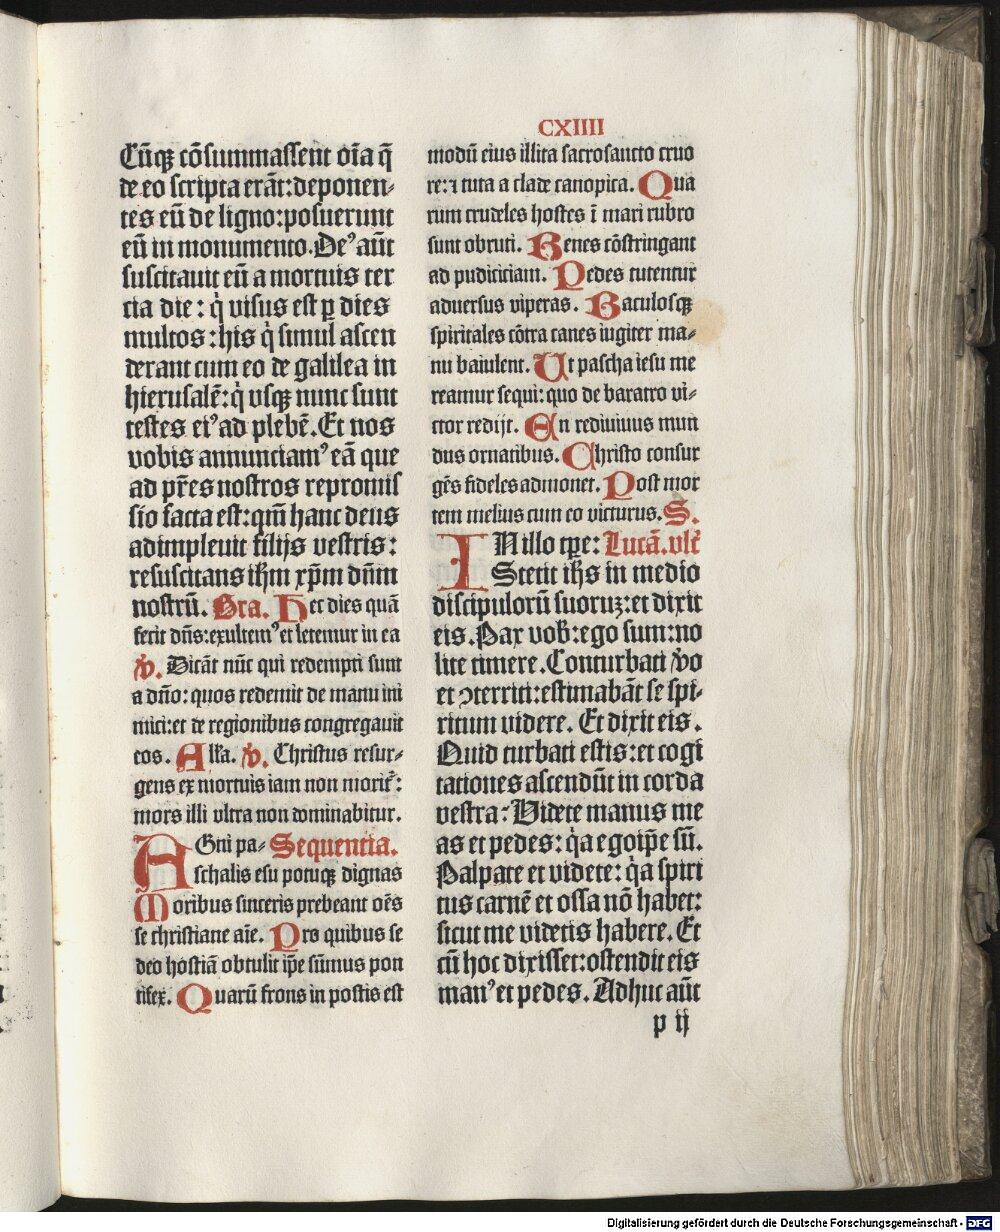 CXIIII
Cūqꝫ cōsummassent oīa q̄
de eo scripta erāt: deponen⸗
tes eū de ligno: posuerunt
eū in monumento. De᷒ aūt
suscitauit eū a mortuis ter
cia die: q̇ visus est ꝑ dies
multos: his q̇ simul ascen
derant cum eo de galilea in
hierusalē: q̇ vsqꝫ nunc sunt
testes ei᷒ ad plebē. Et nos
vobis annunciam᷒ eā que
ad p̄res nostros repromis
sio facta est: qm̄ hanc deus
adimpleuit filijs vestris:
resuscitans ih̄m xp̄m dn̄m
nostrū. Gra. Hec dies quā
fecit dn̄s: exultem᷒ et letemur in ea
v̓. Dicāt nūc qui redempti sunt
a dn̄o: quos redemit de manu ini
mici: et de regionibus congregauit
eos. Alla. v̓. Christus resur⸗
gens ex mortuis iam non morit᷑:
mors illi vltra non dominabitur.
AGni pa⸗ Sequentia.
schalis esu potuqꝫ dignas
Moribus sinceris prebeant oēs
se christiane aīe. Pro quibus se
deo hostiā obtulit ip̄e sūmus pon
tifex. Quarū frons in postis est
modū eius illita sacrosancto cruo
re: ⁊ tuta a clade canopica. Qua
rum crudeles hostes ī mari rubro
sunt obruti. Renes cōstringant
ad pudiciciam. Pedes tutentur
aduersus viperas. Baculosqꝫ
spiritales cōtra canes iugiter ma⸗
nu baiulent. Ut pascha iesu me
reamur sequi: quo de baratro vi⸗
ctor redijt. En rediuiuus mun
dus ornatibus. Christo consur
gēs fideles admonet. Post mor
tem melius cum eo victurus. S.
IN illo tꝑe: Lucā. vlt᷑
Stetit ih̄s in medio
discipulorū suoruꝫ: et dixit
eis. Pax vob̄: ego sum: no
lite timere. Conturbati v̓o
et ꝯterriti: estimabāt se spi⸗
ritum videre. Et dixit eis.
Quid turbati estis: et cogi
tationes ascendūt in corda
vestra: Videte manus me
as et pedes: q̇a ego ip̄e sū.
Palpate et videte: q̇a spiri
tus carnē et ossa nō habet:
sicut me videtis habere. Et
cū hoc dixisset: ostendit eis
man᷒ et pedes. Adhuc aūt
p ij
Digitalisierung gefördert durch die Deutsche Forschungsgemeinschaft - DFG